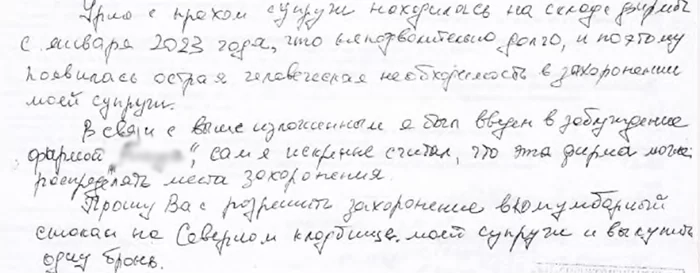 Урна с прахом супруги находилась на складе фирмы
с января 2023 года, что непозволительно долго, и поэтому
появилась острая человеческая необходимость в захоронении
моей супруги.
В связи с выше изложенным я был введен в заблуждение
фирмой " ", сам я искренне считал, что эта фирма может
распределять места захоронения.
Прошу Вас разрешить захоронение в колумбарный
стакан на Северном кладбище моей супруги и выкупить
одну бронь.